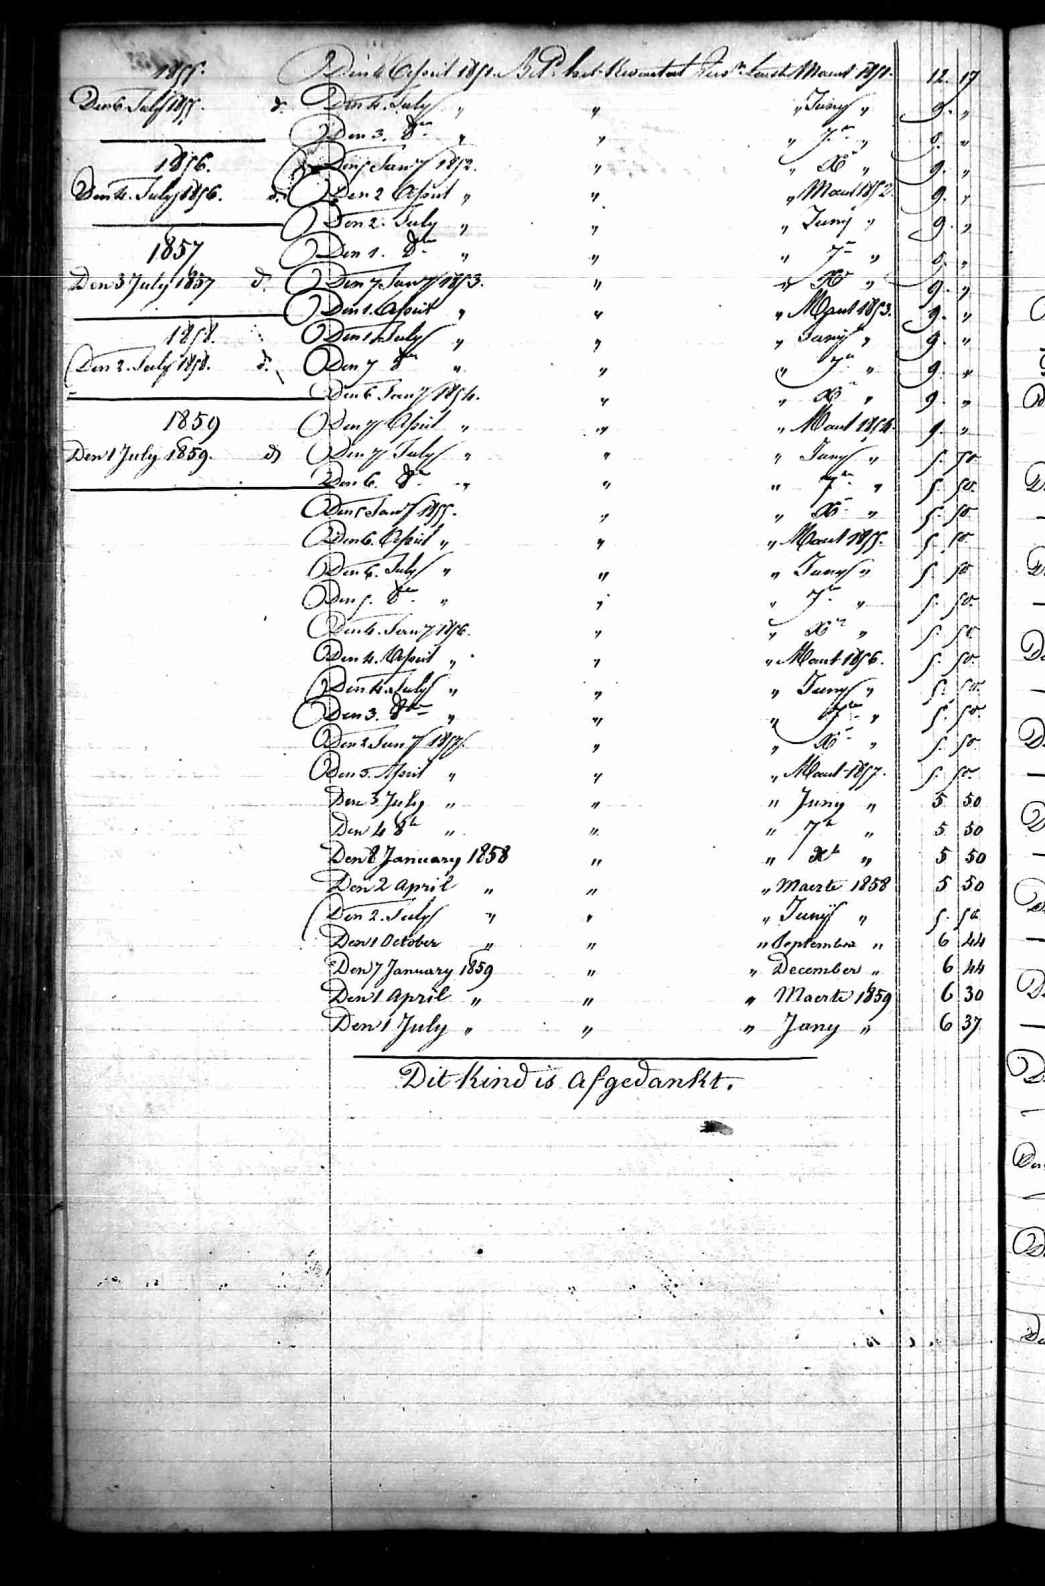 1855.
Den 6 July 1855. d.
1856.
Den 4. July 1856. d.
1857
Den 3 July 1857 d.
1858.
Den 2. July 1858. d.
1859
Den 1 July 1859. d
Den 4 April 1851. het Kwartaal Maart 1851. 12. 17
Den 4. July " " " Juny " 9. "
Den 3. 8br " " " 7br " 9. "
Den 5 Jany 1852. " " Xbr " 9. "
Den 2 April " " " Maart 1852. 9. "
Den 2. July " " " Juny " 9. "
Den 1. 8br " " " 7br " 9. "
Den 7 Jany 1853. " " Xbr " 9. "
Den 1. April " " " Maart 1853. 9. "
Den 1. July " " " Juny " 9. "
Den 7 8br " " " 7br " 9. "
Den 6 Jany 1854. " " Xbr " 9. "
Den 7 April " " " Maart 1854. 9. "
Den 7 July " " " Juny " 5. 50.
Den 6. 8br " " " 7br " 5. 50.
Den 5 Jany 1855. " " Xbr " 5. 50.
Den 6. April " " " Maart 1855. 5. 50
Den 6. July " " " Juny " 5. 50
Den 5. 8br " " " 7br " 5. 50.
Den 4. Jany 1856. " " Xbr " 5. 50.
Den 4. April " " " Maart 1856. 5. 50.
Den 4. July " " " Juny " 5. 50.
Den 3. 8br " " " 7br " 5. 50.
Den 2 Jany 1857. " " Xbr " 5. 50.
Den 3. April " " " Maart 1857. 5. 50.
Den 3 July " " " Juny " 5 50
Den 4 8br " " " 7br " 5 50
Den 8 January 1858 " " Xbr " 5 50
Den 2 April " " " Maerte 1858 5 50
Den 2. July " " " Juny " 5. 50
Den 1 October " " " September " 6 44
Den 7 January 1859 " " December " 6 44
Den 1 April " " " Maerte 1859 6 30
Den 1 July " " " Jany " 6 37
Dit Kind is afgedankt.